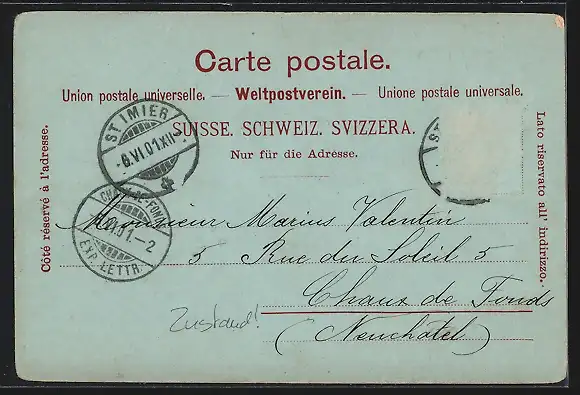 Carte postale.
Union postale universelle. — Weltpostverein. — Unione postale universale.
SUISSE. SCHWEIZ. SVIZZERA.
Nur für die Adresse.
Côté réservé à l'adresse.
Lato riservato all' indirizzo.
ST IMIER
-6.VI.01.XII-
EXP. LETTR.
ST
Monsieur Marius Valentin
5 Rue du Soleil 5
Chaux de Fonds
(Neuchâtel)
Zustand!